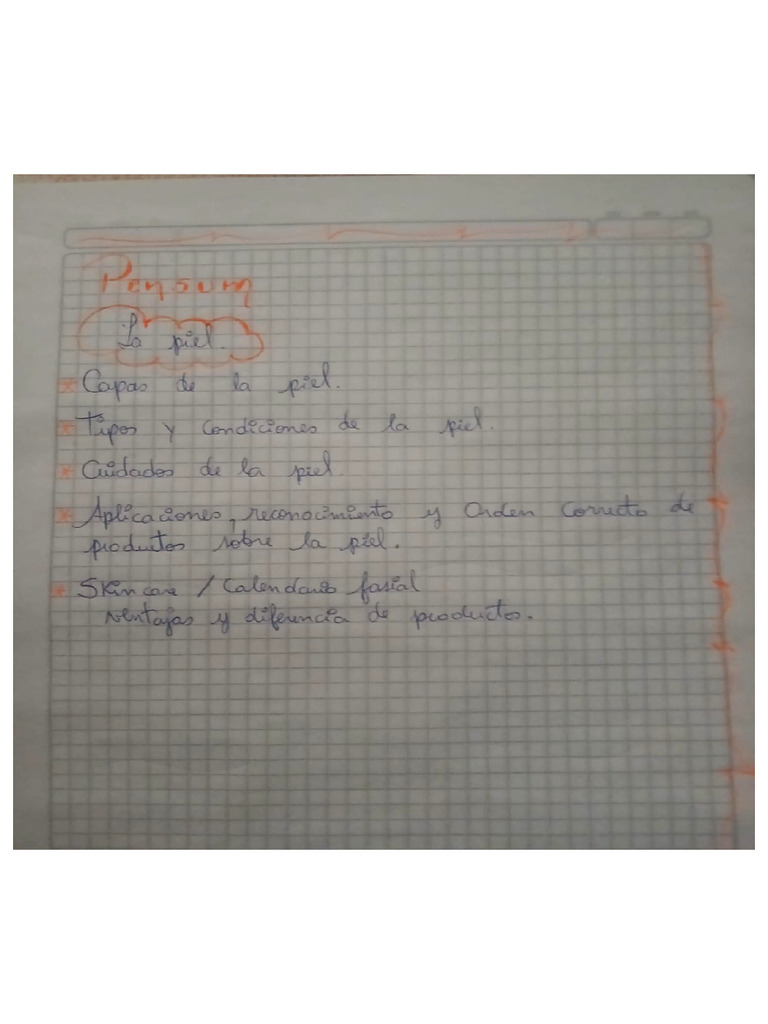 Pensum
La piel.
* Capas de la piel.
* Tipos y condiciones de la piel.
* Cuidados de la piel
* Aplicaciones, reconocimiento y Orden correcto de
productos sobre la piel.
* Skincare / Calendario fasial
ventajas y diferencia de productos.